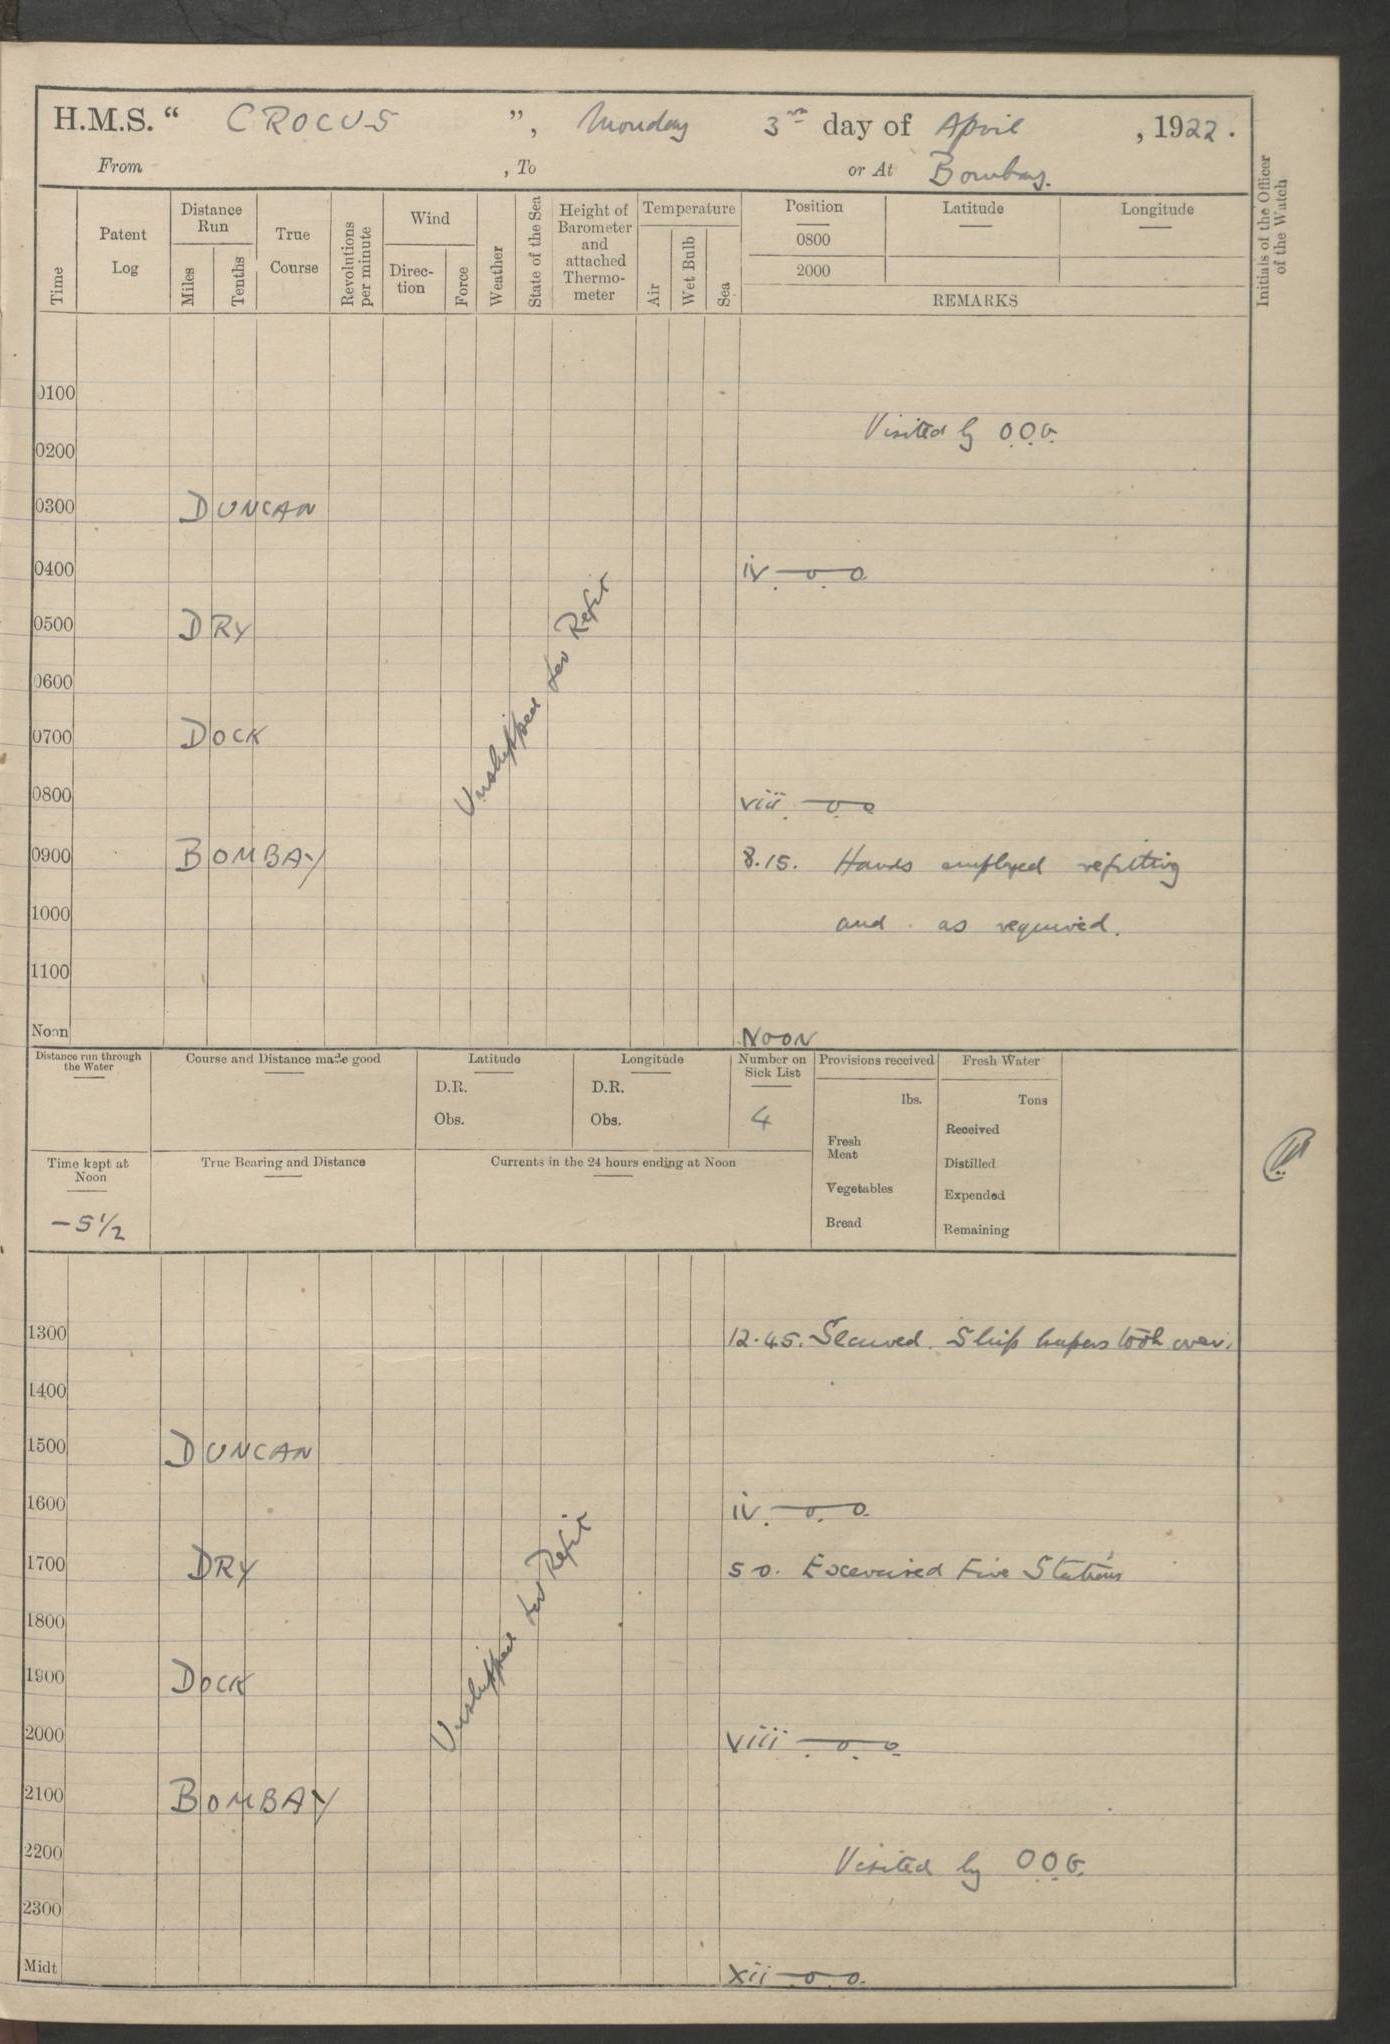 H.M.S. “ CROCUS ”, Monday 3rd day of April , 1922.
From , To or At Bombay.
Initials of the Officer of the Watch
Time
Patent Log
Distance Run
Miles
Tenths
True Course
Revolutions per minute
Wind
Direc-tion
Force
Weather
State of the Sea
Height of Barometer and attached Thermo-meter
Temperature
Air
Wet Bulb
Sea
Position
Latitude
Longitude
0800
2000
REMARKS
0100
Visited by O.O.G.
0200
0300 DUNCAN
0400 iv. —o—o
0500 DRY
Unshipped for Refit
0600
0700 DOCK
0800 viii. —o—o
0900 BOMBAY 8.15. Hands employed refitting
1000 and as required.
1100
Noon NOON
Distance run through the Water
Course and Distance made good
Latitude
D.R.
Obs.
Longitude
D.R.
Obs.
Number on Sick List
4
Provisions received
lbs.
Fresh Meat
Vegetables
Bread
Fresh Water
Tons
Received
Distilled
Expended
Remaining
Time kept at Noon
-5½
True Bearing and Distance
Currents in the 24 hours ending at Noon
1300 12.45. Secured. Ship keepers took over.
1400
1500 DUNCAN
1600 iv. —o—o
1700 DRY 5 0. Exercised Fire Stations
Unshipped for Refit
1800
1900 DOCK
2000 viii —o—o
2100 BOMBAY
2200 Visited by O.O.G.
2300
Midt xii —o—o